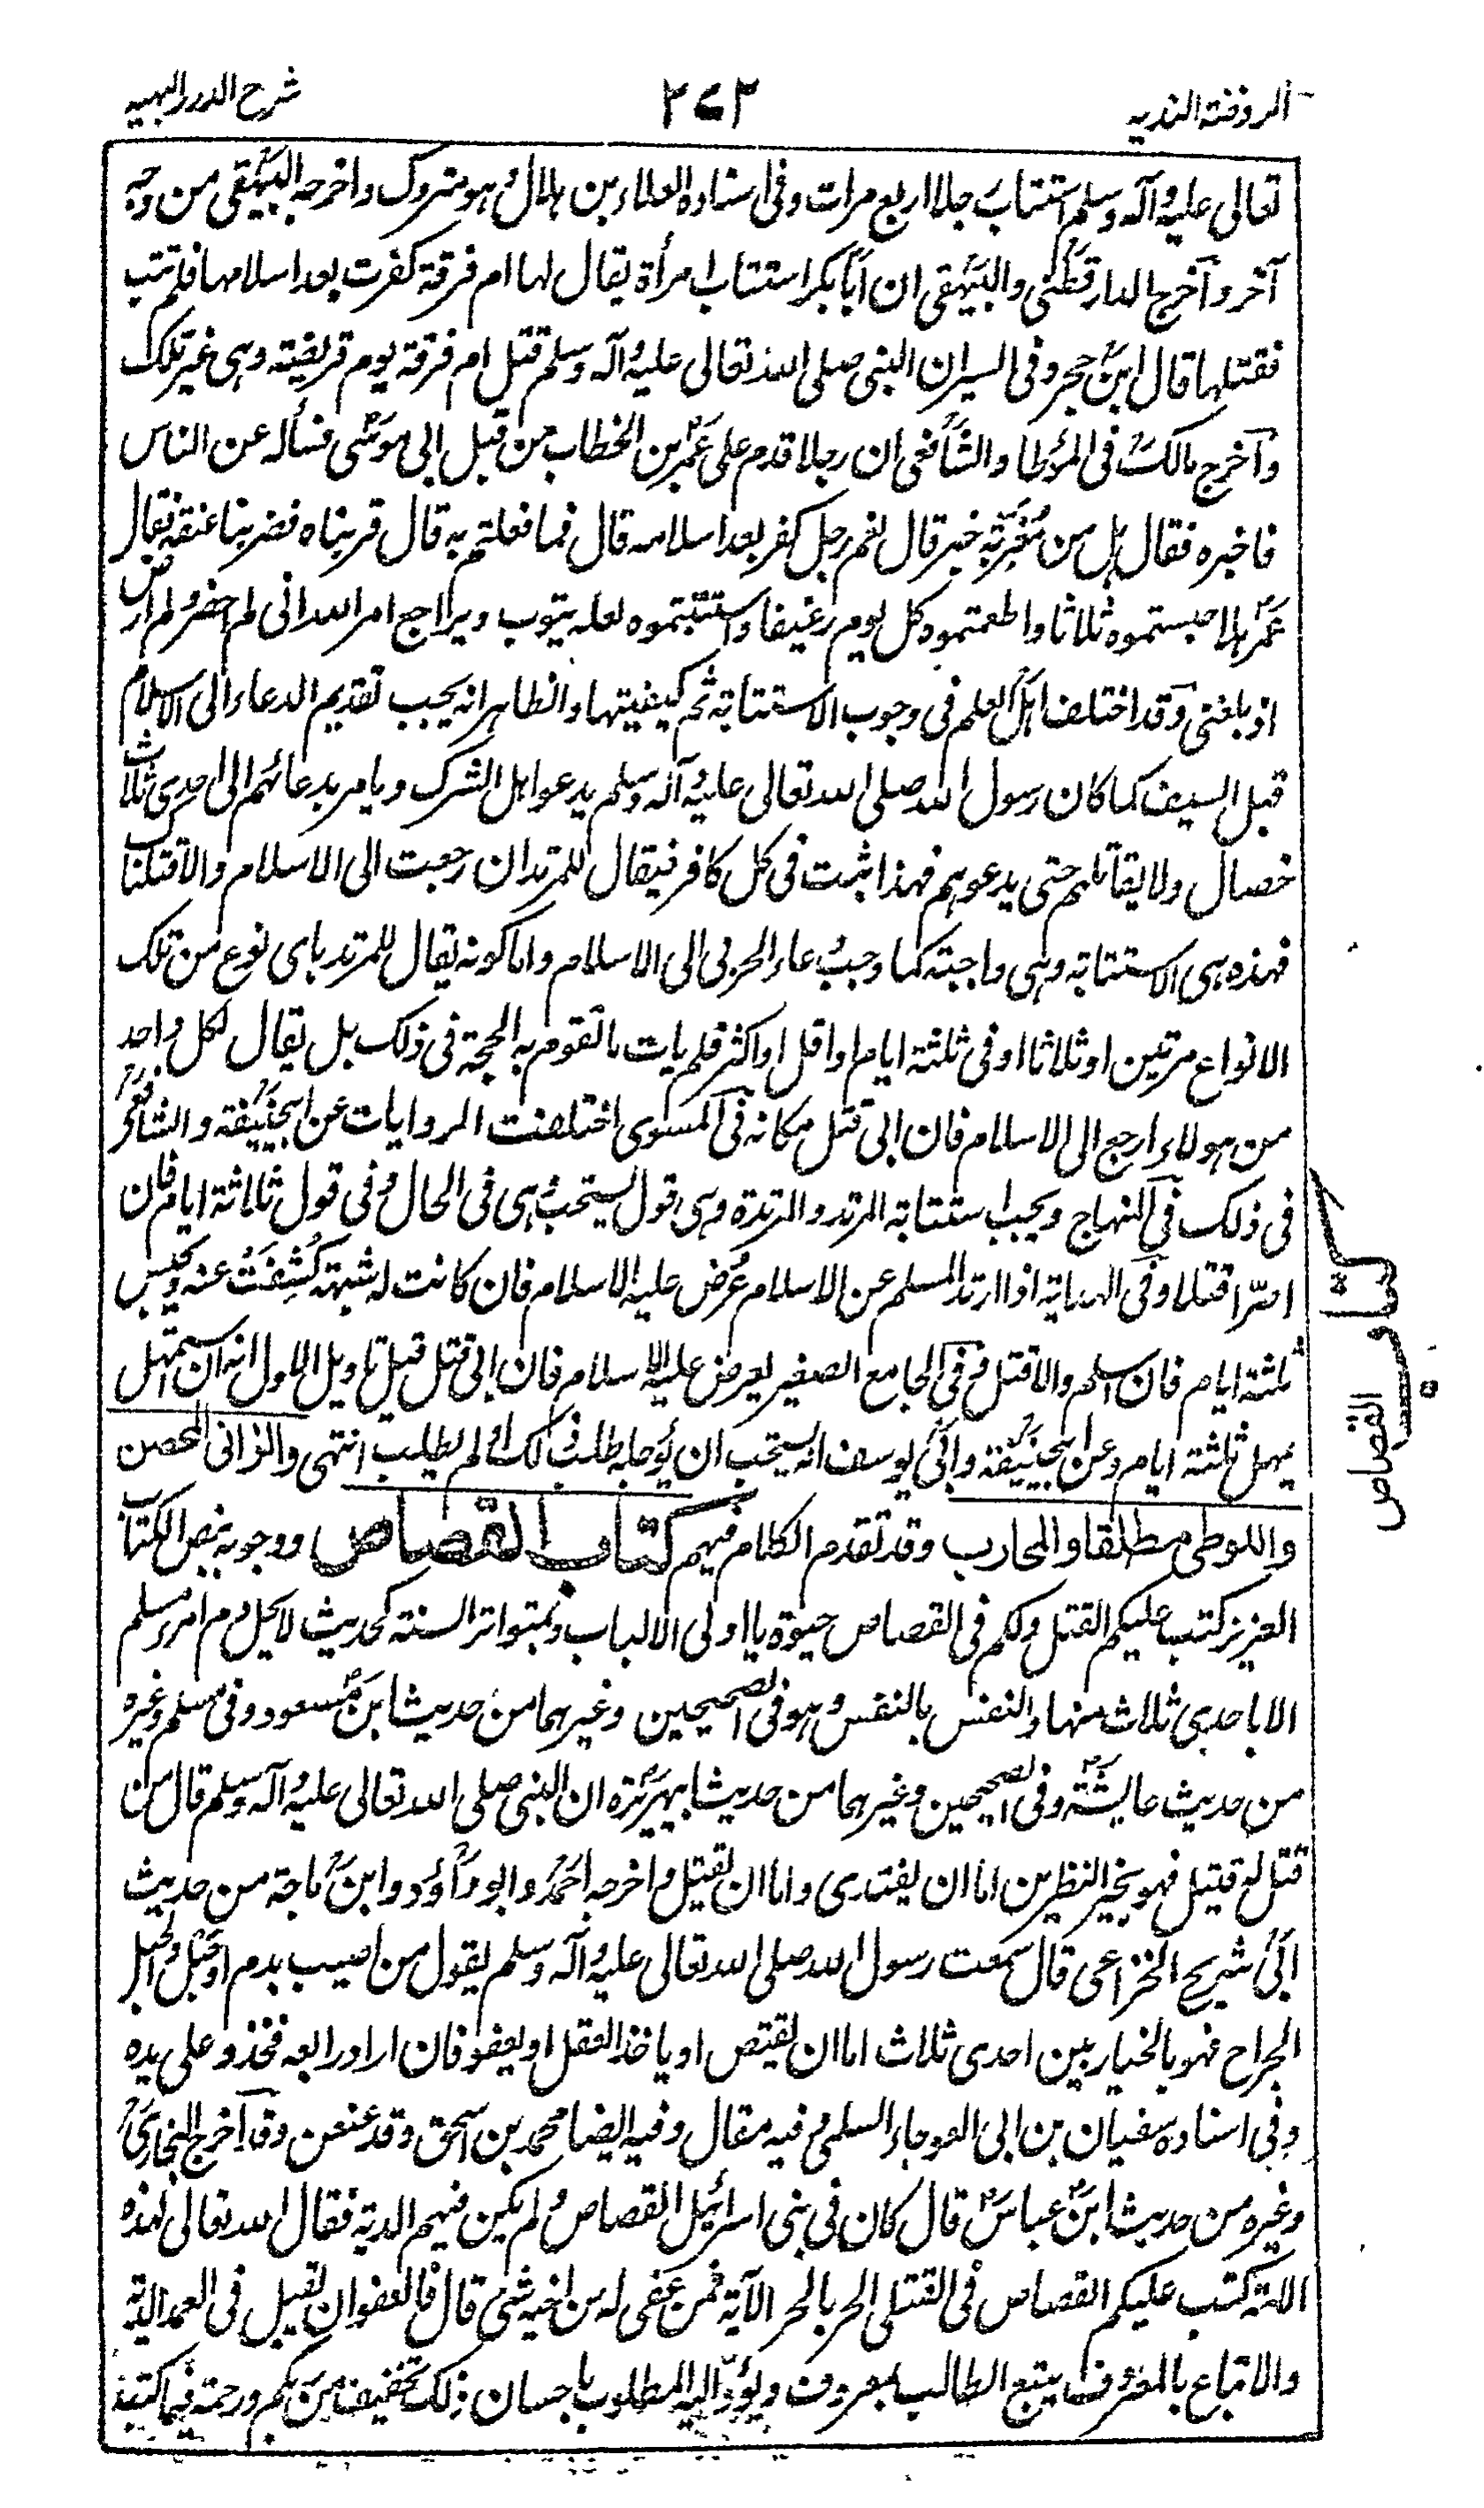 الروضة الندیه
۲۷۳
شرح الدرر البهیه
تعالی علیه وآله وسلم استتاب رجلا اربع مرات وفی اسناده العلاء بن هلال وهو متروک واخرجه البیهقی من وجه
آخر وآخرج الدارقطنی والبیهقی ان ابا بکر استتاب امرأة یقال لها ام قرفة کفرت بعد اسلامها فلم تتب
فقتلها قال ابن حجر وفی السیر ان النبی صلی الله تعالی علیه وآله وسلم قتل ام قرفة یوم قریظة وهی غیر تلک
وآخرج مالک فی المؤطا والشافعی ان رجلا قدم علی عمر بن الخطاب من قبل ابی موسی فسأله عن الناس
فاخبره فقال هل من مغربة خبر قال نعم رجل کفر بعد اسلامه قال فما فعلتم به قال قربناه فضربنا عنقه فقال
عمر هلا حبستموه ثلاثا واطعمتموه کل یوم رغیفا واستتبتموه لعله یتوب ویراجع امر الله انی لم احضر ولم ارض
اذ بلغنی وقد اختلف اهل العلم فی وجوب الاستتابة ثم کیفیتها والظاهر انه یجب تقدیم الدعاء الی الاسلام
قبل السیف کما کان رسول الله صلی الله تعالی علیه وآله وسلم یدعو اهل الشرک ویامر بدعائهم الی احدی ثلاث
خصال ولا یقاتلهم حتی یدعوهم فهذا ثبت فی کل کافر فیقال للمرتد ان رجعت الی الاسلام والا قتلناک
فهذه هی الاستتابة وهی واجبة کما وجب دعاء الحربی الی الاسلام واما کونه یقال للمرتد بای نوع من تلک
الانواع مرتین او ثلاثا او فی ثلثة ایام او اقل او اکثر فلم یات ما تقوم به الحجة فی ذلک بل یقال لکل واحد
من هولاء ارجع الی الاسلام فان ابی قتل مکانه فی المسوی اختلفت الروایات عن ابیحنیفة والشافعی
فی ذلک فی المنهاج ویجب استتابة المرتد والمرتدة وهی قول یستحب وهی فی الحال وفی قول ثلاثة ایام فان
اصرا قتلا وفی الهدایة اذا ارتد المسلم عن الاسلام عرض علیه الاسلام فان کانت له شبهة کشفت عنه ویحبس
ثلثة ایام فان اسلم والا قتل وفی الجامع الصغیر یعرض علیه الاسلام فان ابی قتل قیل تاویل الاول انه ان استمهل
یمهل ثلثة ایام وعن ابیحنیفة وابی یوسف انه یستحب ان یؤجله طلب ذلک او لم یطلب انتهی والزانی المحصن
واللوطی مطلقا والمحارب وقد تقدم الکلام فیهم کتاب القصاص ووجوبه بنص الکتاب
العزیز کتب علیکم القتل ولکم فی القصاص حیوة یا اولی الالباب وبمتواتر السنة کحدیث لا یحل دم امرء مسلم
الا باحدی ثلاث منها والنفس بالنفس وهو فی الصحیحین وغیرهما من حدیث ابن مسعود وفی مسلم وغیره
من حدیث عایشة وفی الصحیحین وغیرهما من حدیث ابیهریرة ان النبی صلی الله تعالی علیه وآله وسلم قال من
قتل له قتیل فهو بخیر النظرین اما ان یفتدی واما ان یقتل واخرجه احمد وابو داؤد وابن ماجة من حدیث
ابی شریح الخزاعی قال سمعت رسول الله صلی الله تعالی علیه وآله وسلم یقول من اصیب بدم او خبل والخبل
الجراح فهو بالخیار بین احدی ثلاث اما ان یقتص او یاخذ العقل او یعفو فان اراد رابعه فخذوا علی یده
وفی اسناده سفیان بن ابی العوجاء السلمی وفیه مقال وفیه ایضا محمد بن اسحق وقد عنعن وقد آخرج البخاری
وغیره من حدیث ابن عباس قال کان فی بنی اسرائیل القصاص ولم یکن فیهم الدیة فقال الله تعالی لهذه
الامة کتب علیکم القصاص فی القتلی الحر بالحر الآیة فمن عفی له من اخیه شئ قال فالعفو ان یقبل فی العمد الدیة
والاتباع بالمعروف یتبع الطالب بمعروف ویؤدی الیه المطلوب باحسان ذلک تخفیف من ربکم ورحمة فیما کتب
کتاب القصاص